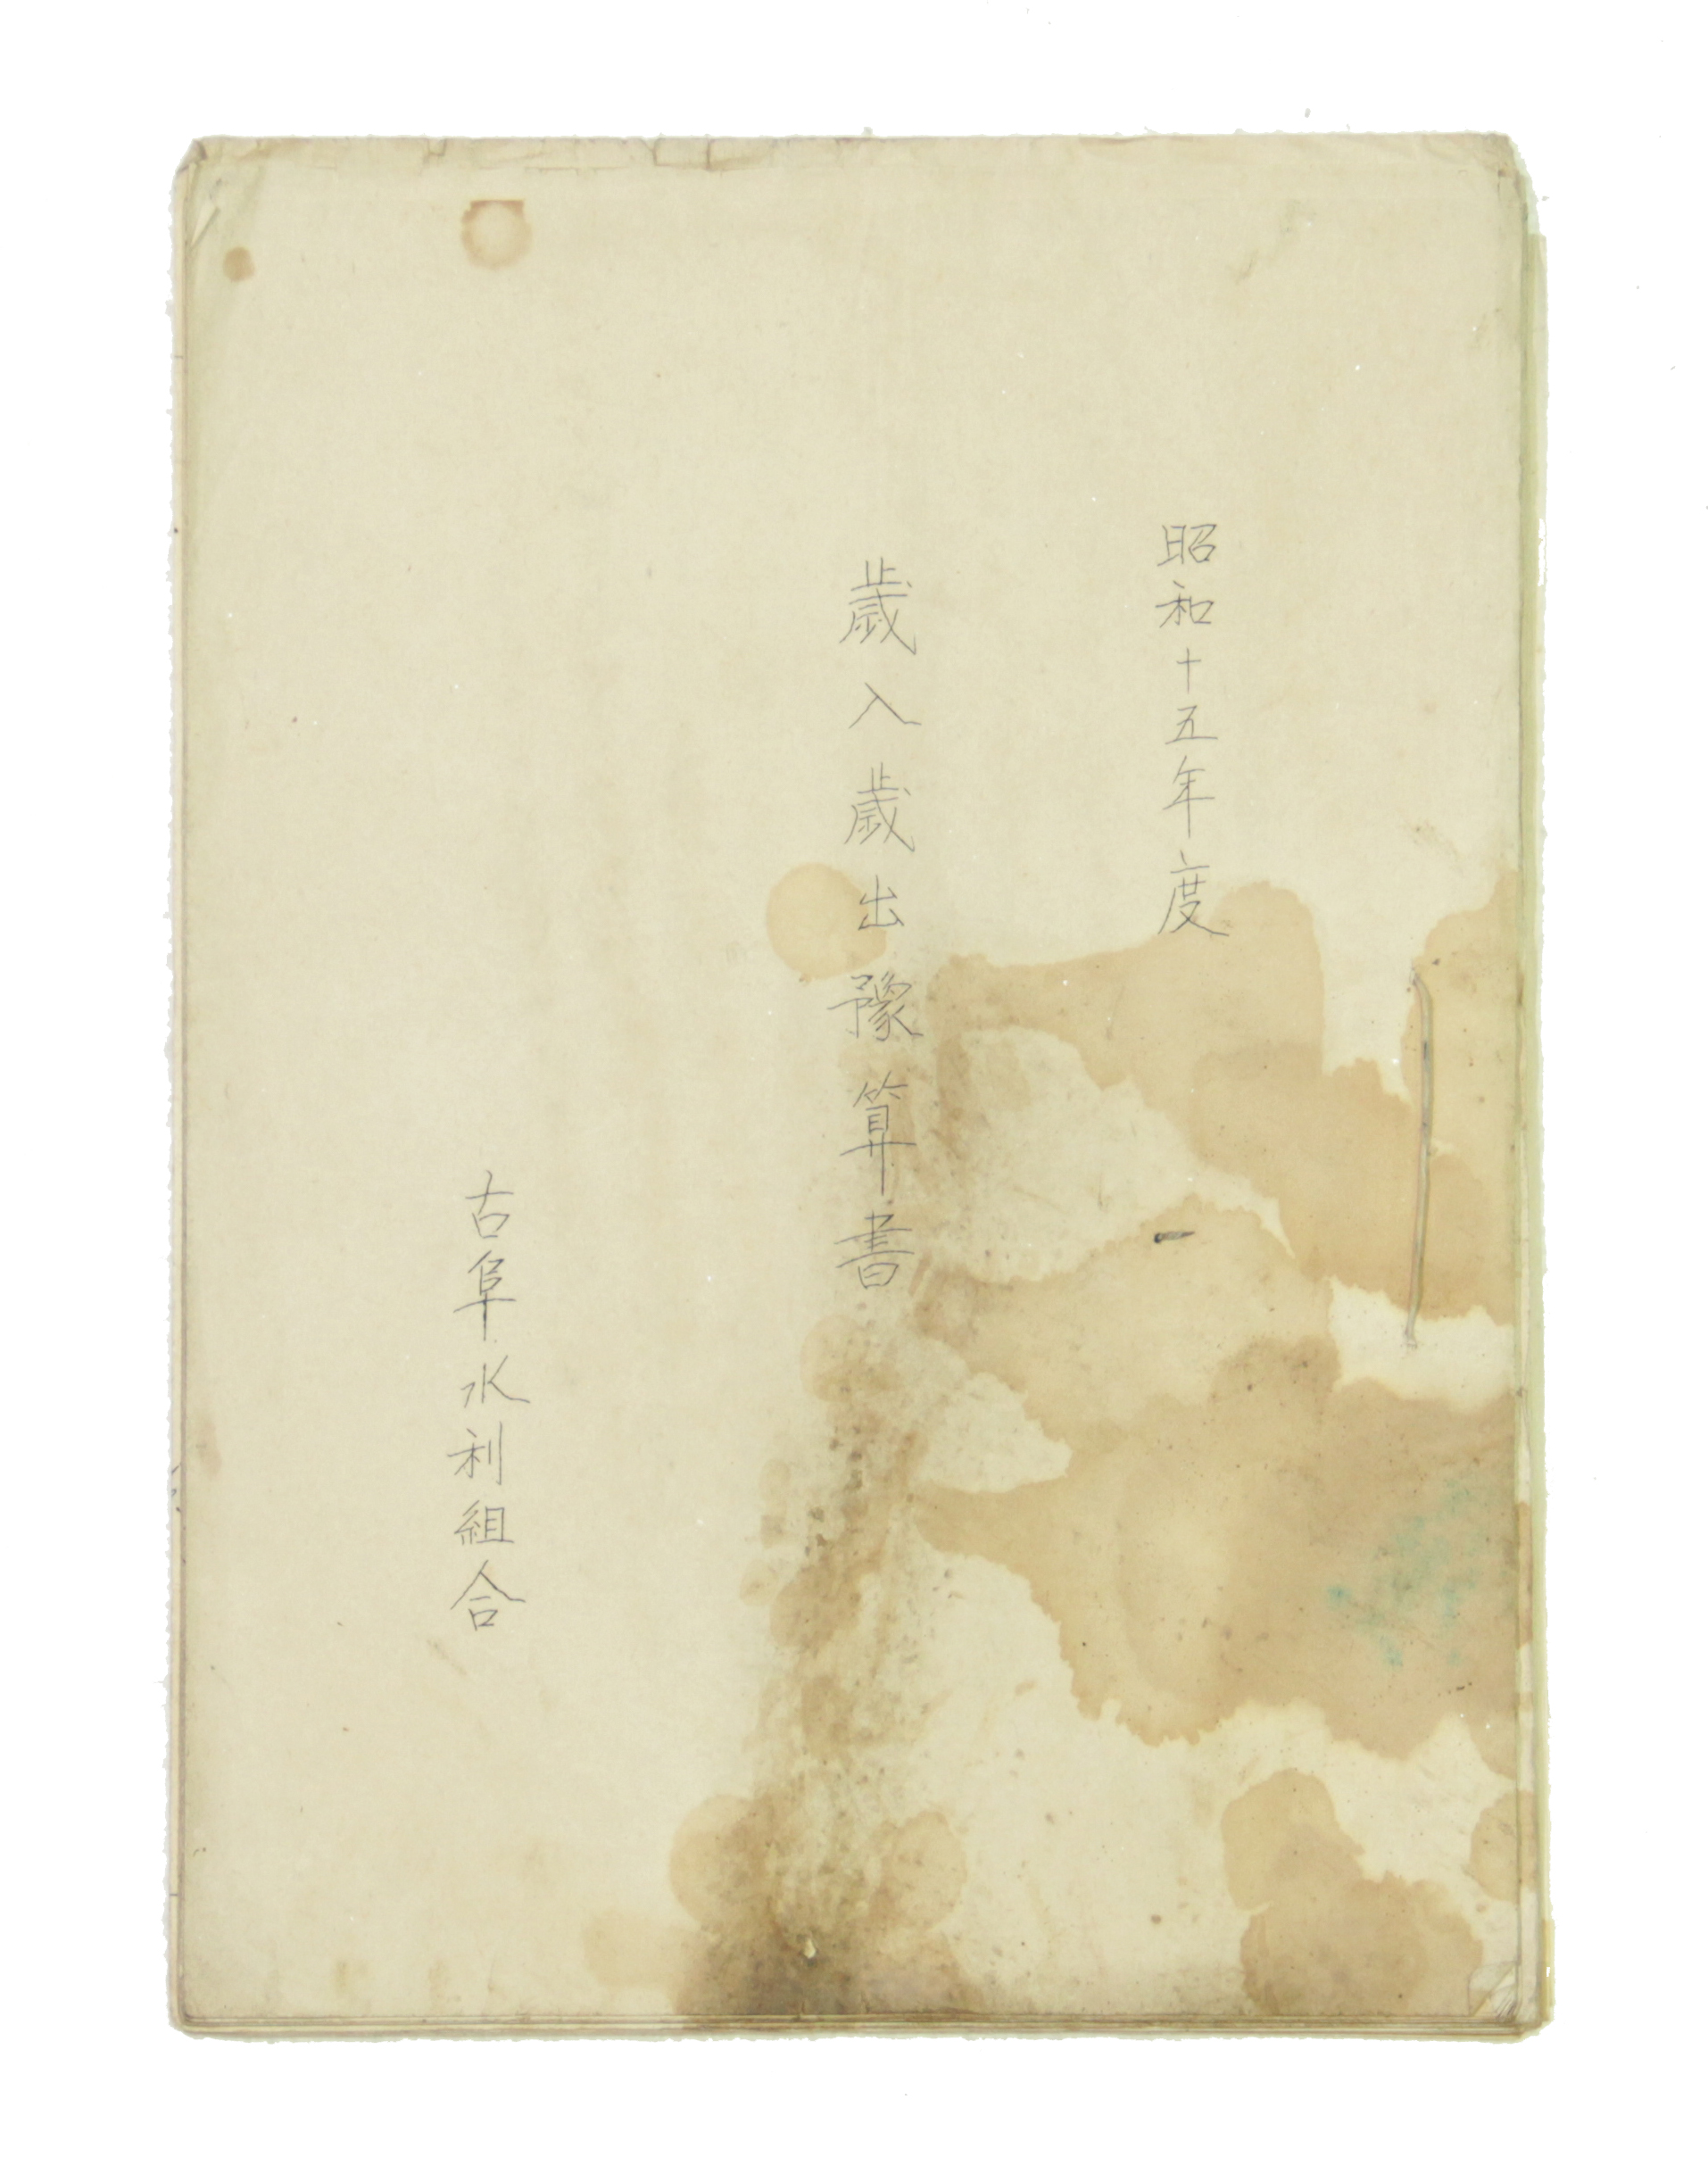 昭和十五年度
歲入歲出豫算書
古阜水利組合